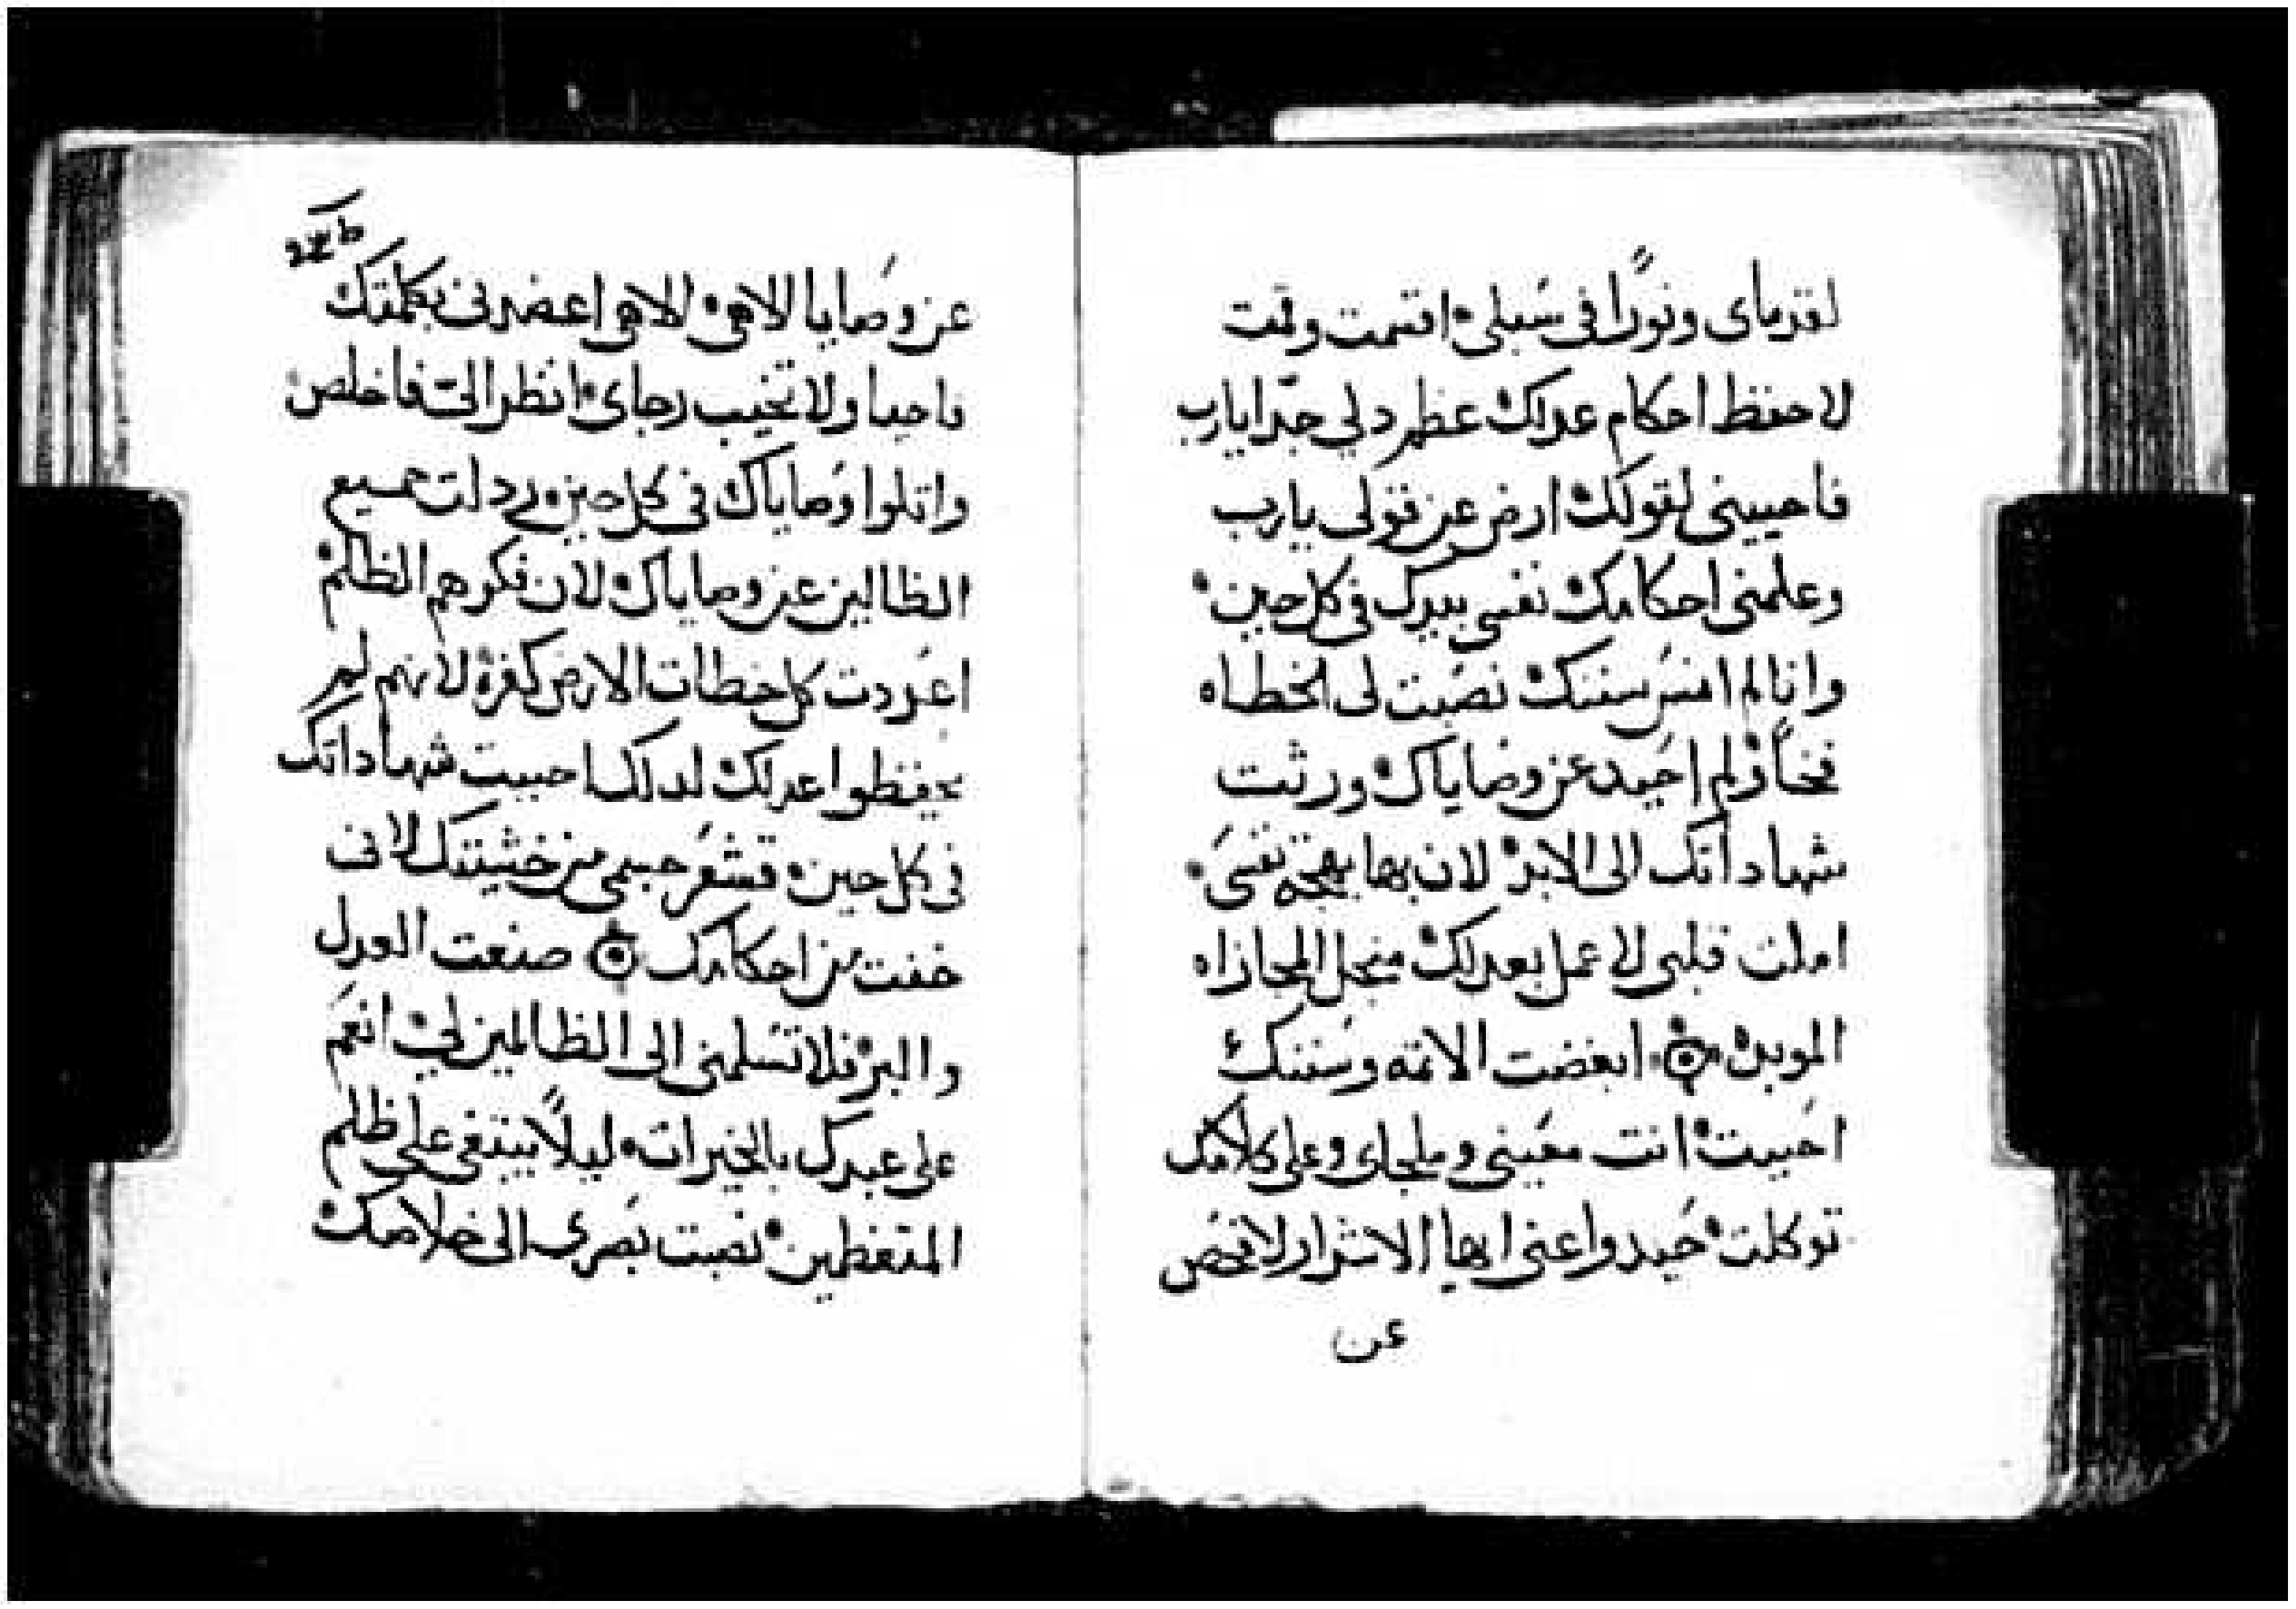 لقدماى ونورًا فى سبلى اقسمت وقمت
لاحفظ احكام عدلك عظم دلي جدا يارب
فاحيينى لقولك ارض عن قولى يارب
وعلمنى احكامك نفسى بيدك فى كل حين
وانا لم انس سننك نصبت لى الخطاه
فخاخ لم احيد عن وصاياك ورثت
شهاداتك الى الابد لان بها بهجة نفسى
املت قلبى لاعمل بعدلك من اجل المجازاه
الموبده ابغضت الاثمه وسننك
احببت انت معينى وملجاى وعلى كلامك
توكلت حيدوا عنى ايها الاشرار لافحص
عن
عن وصايا الاهى الاهى اعضدنى بكلمتك
فاحيا ولا تخيب رجاى انظر الىّ فاخلص
واتلوا وصاياك فى كل حين رذلت جميع
الظالين عن وصاياك لان فكرهم الظلم
اعددت كل خطات الارض كفرة لانهم لم
يحفظوا عدلك لدلك احببت شهاداتك
فى كل حين قشعر جسمى من خشيتك لانى
خفت من احكامك صنعت العدل
والبر فلا تسلمنى الى الظالمين لي انعم
على عبدك بالخيرات ليلًا يبتغى على ظلم
المتعظمين نصبت بصرى الى خلاصك